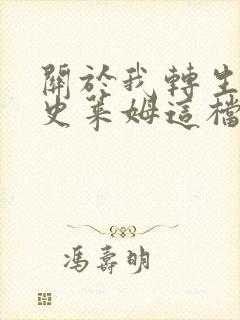 關於我轉生
史萊姆這檔
馮壽明